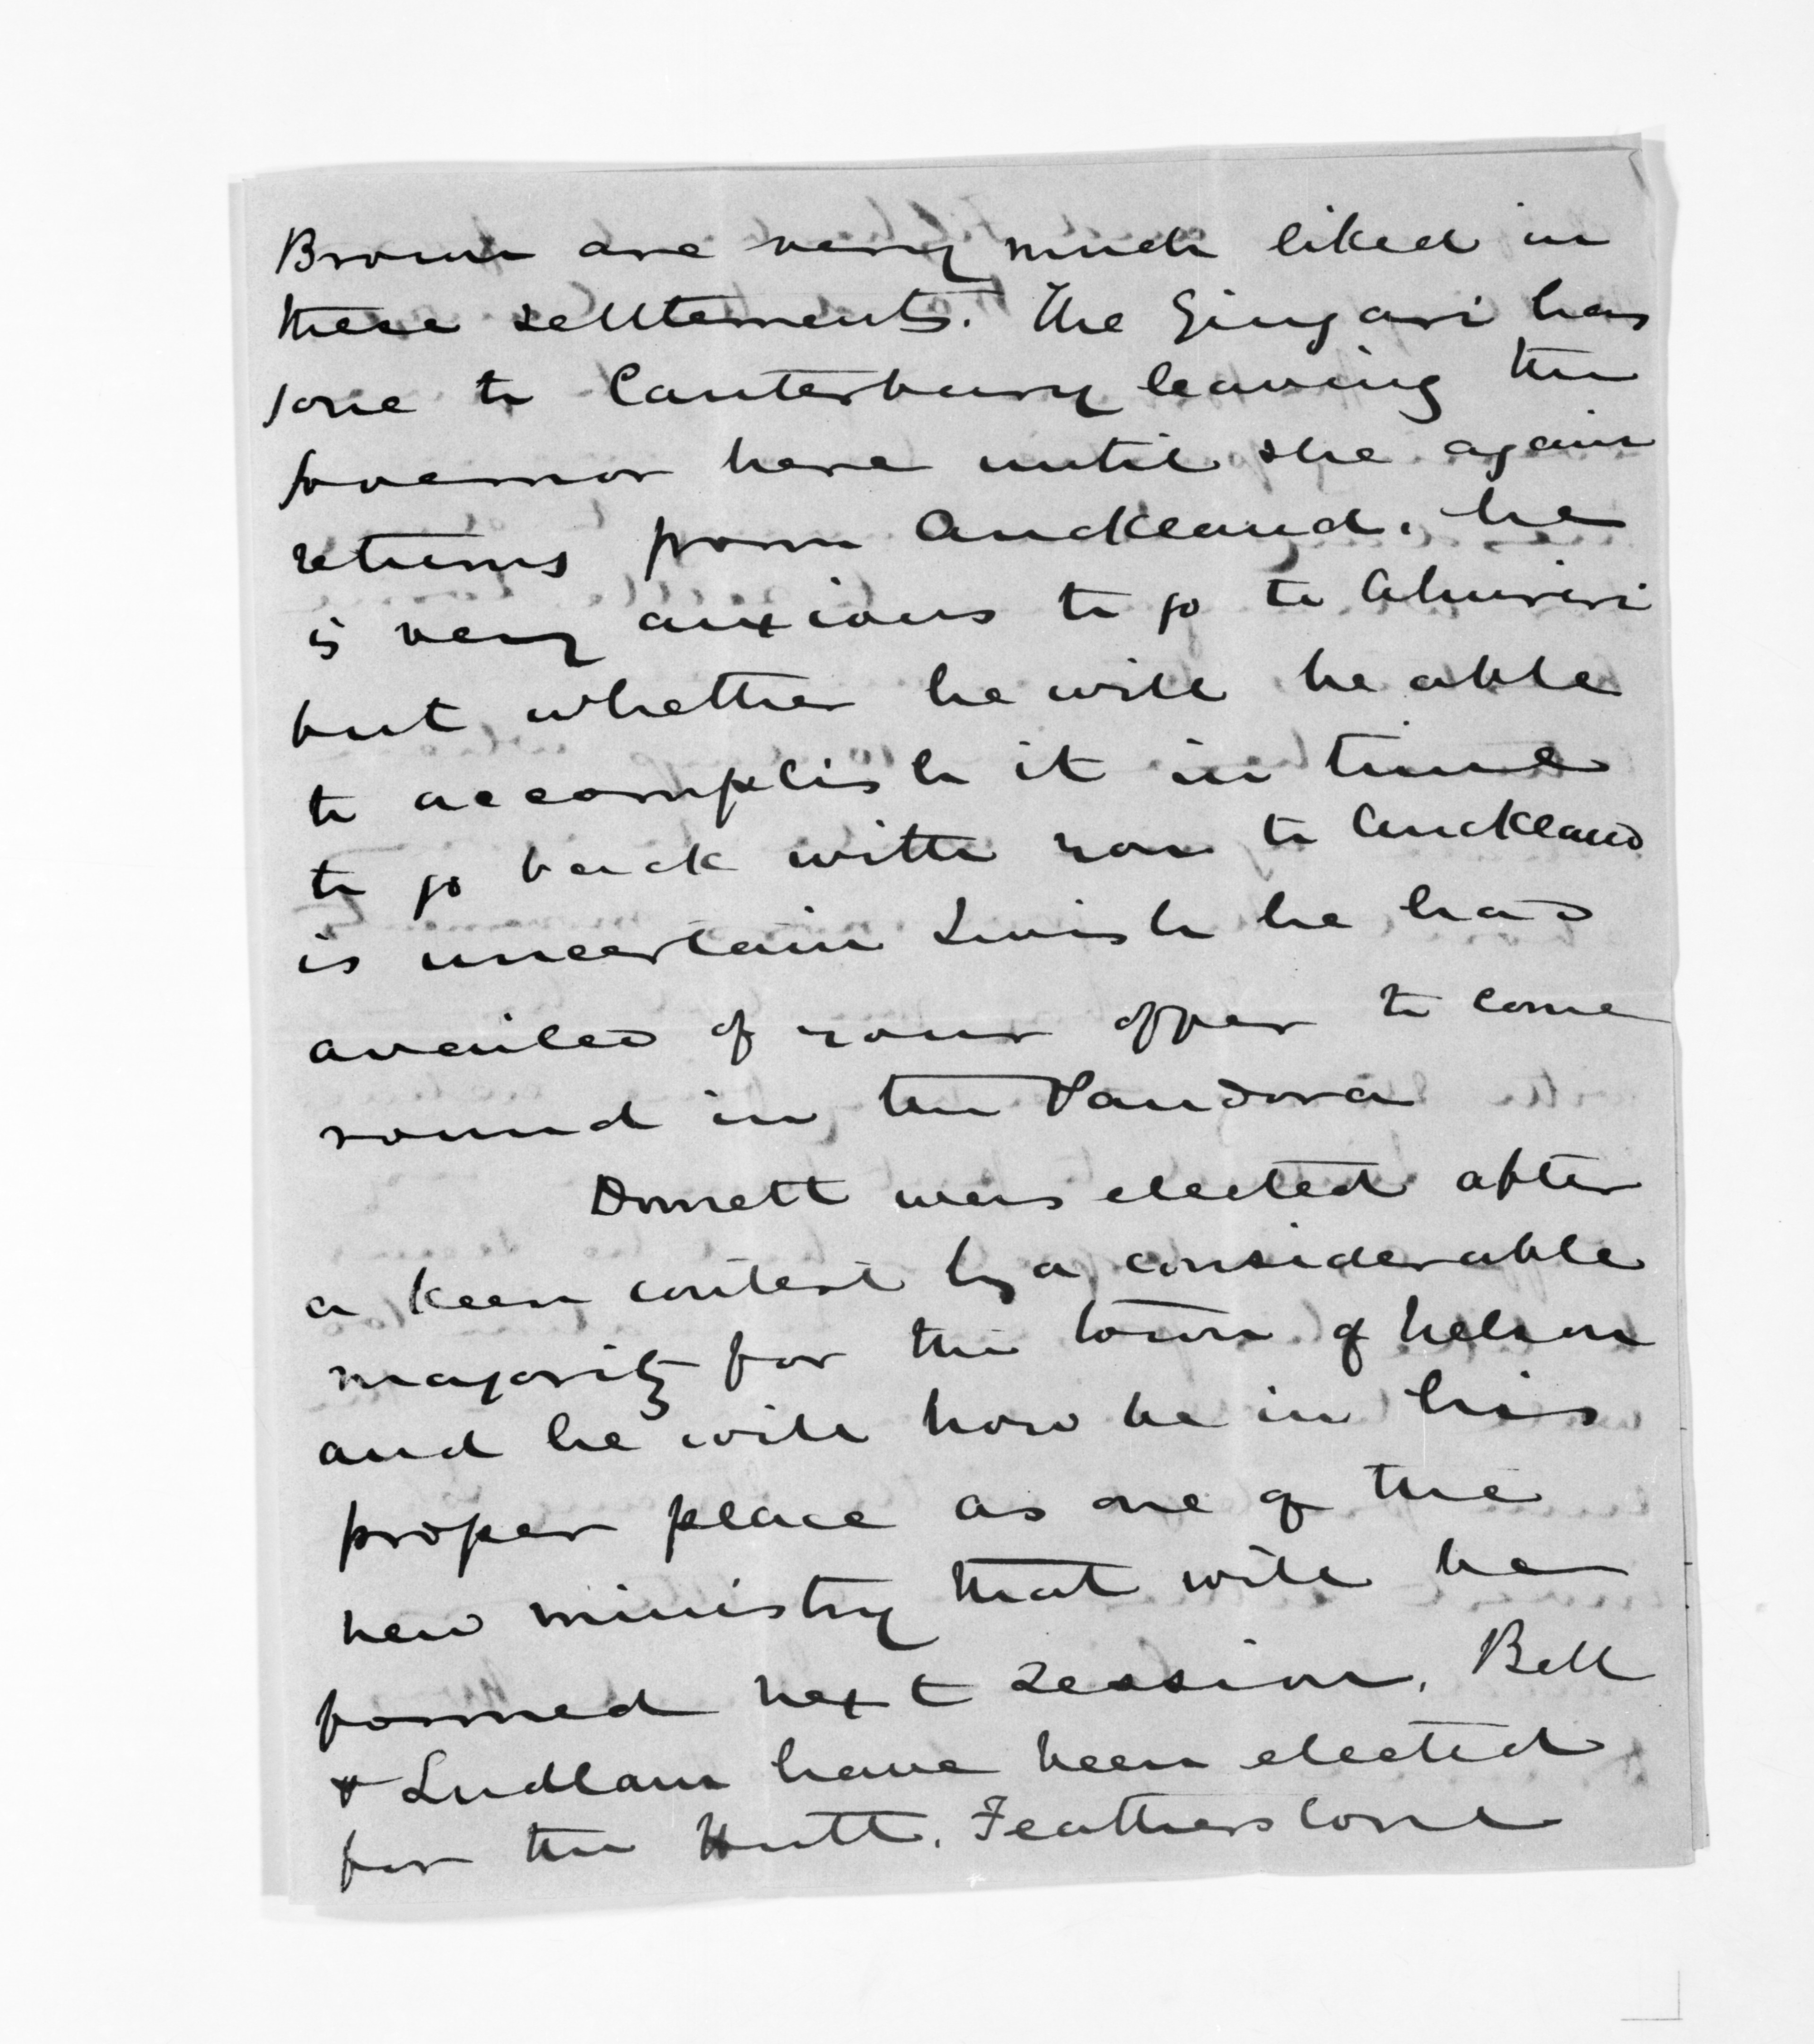 Brown are very much liked in
these settlements. The Zingari has
gone to Canterbury leaving the
Governor here until she again
returns from Auckland. he
is very anxious to go to Ahuriri
but whether he will be able
to accomplish it in time
to go back with you to Auckland
is uncertain I wish he had
availed of your offer to come
round in the Pandora
Domett was elected after
a keen contest by a considerable
majority for the town of Nelson
and he will now be in his
proper place as one of the
new ministry that will be
formed next session. Bell
& Ludlam have been elected
for the Hutt. Featherstone